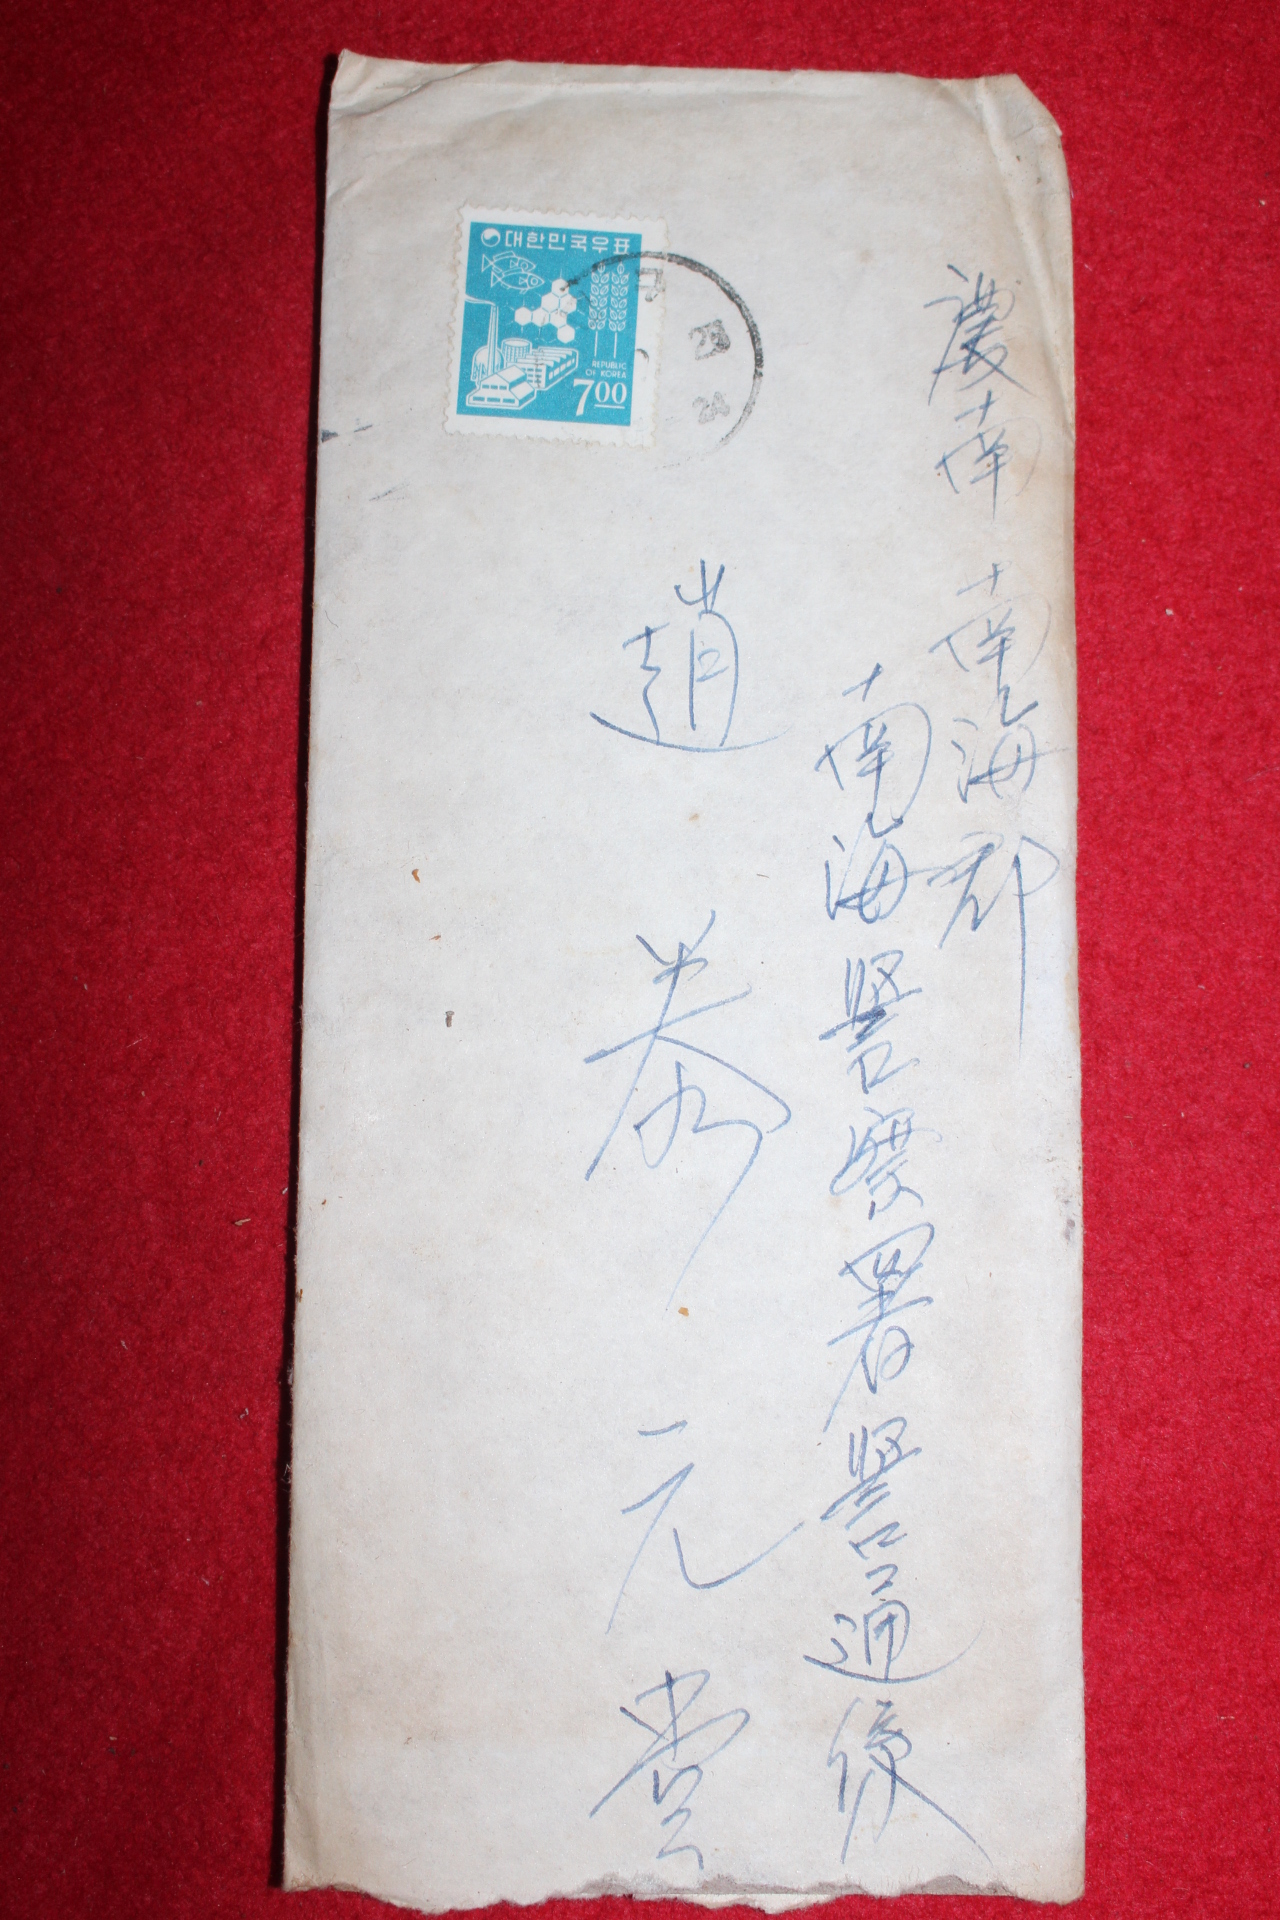 대한민국우표
REPUBLIC
OF KOREA
700
慶南 南海郡
南海警察署 警通係
趙 泰 元 堂